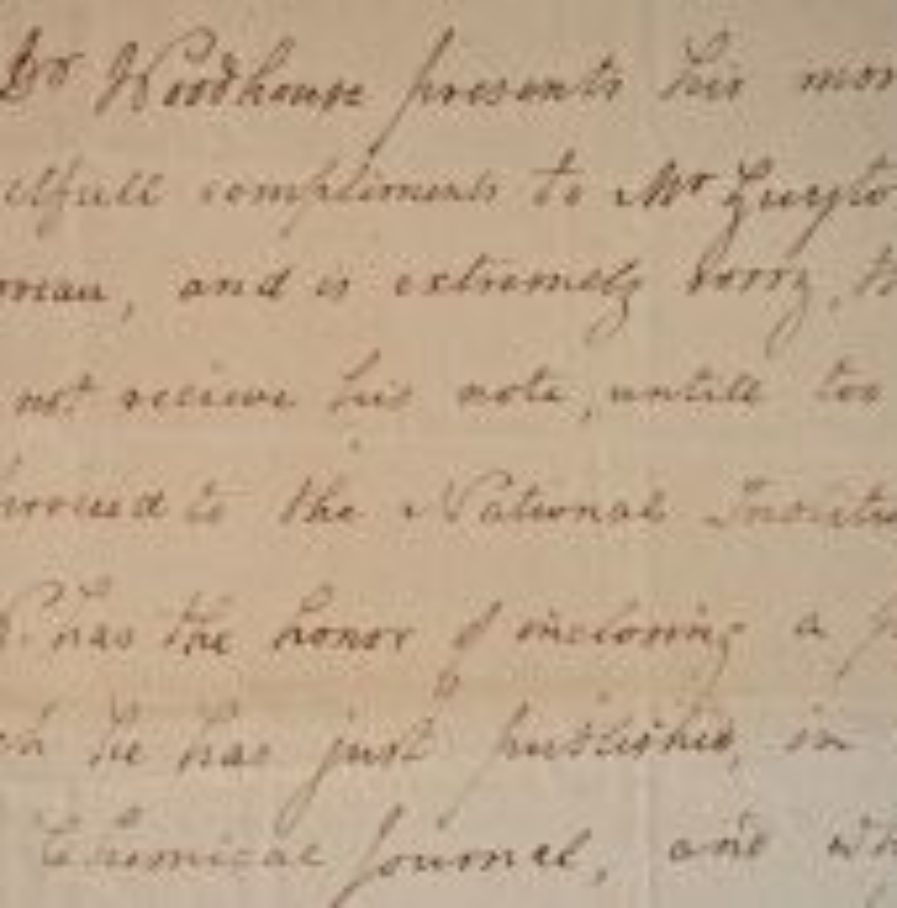 Dr Woodhouse presents his mo
ctfull compliments to Mr Guyto
rveau, and is extremely sorry, th
not recieve his note, untill too
to the National Institu
has the honor of inclosing a p
ch he has just published, in
Chemical Journal, and wh